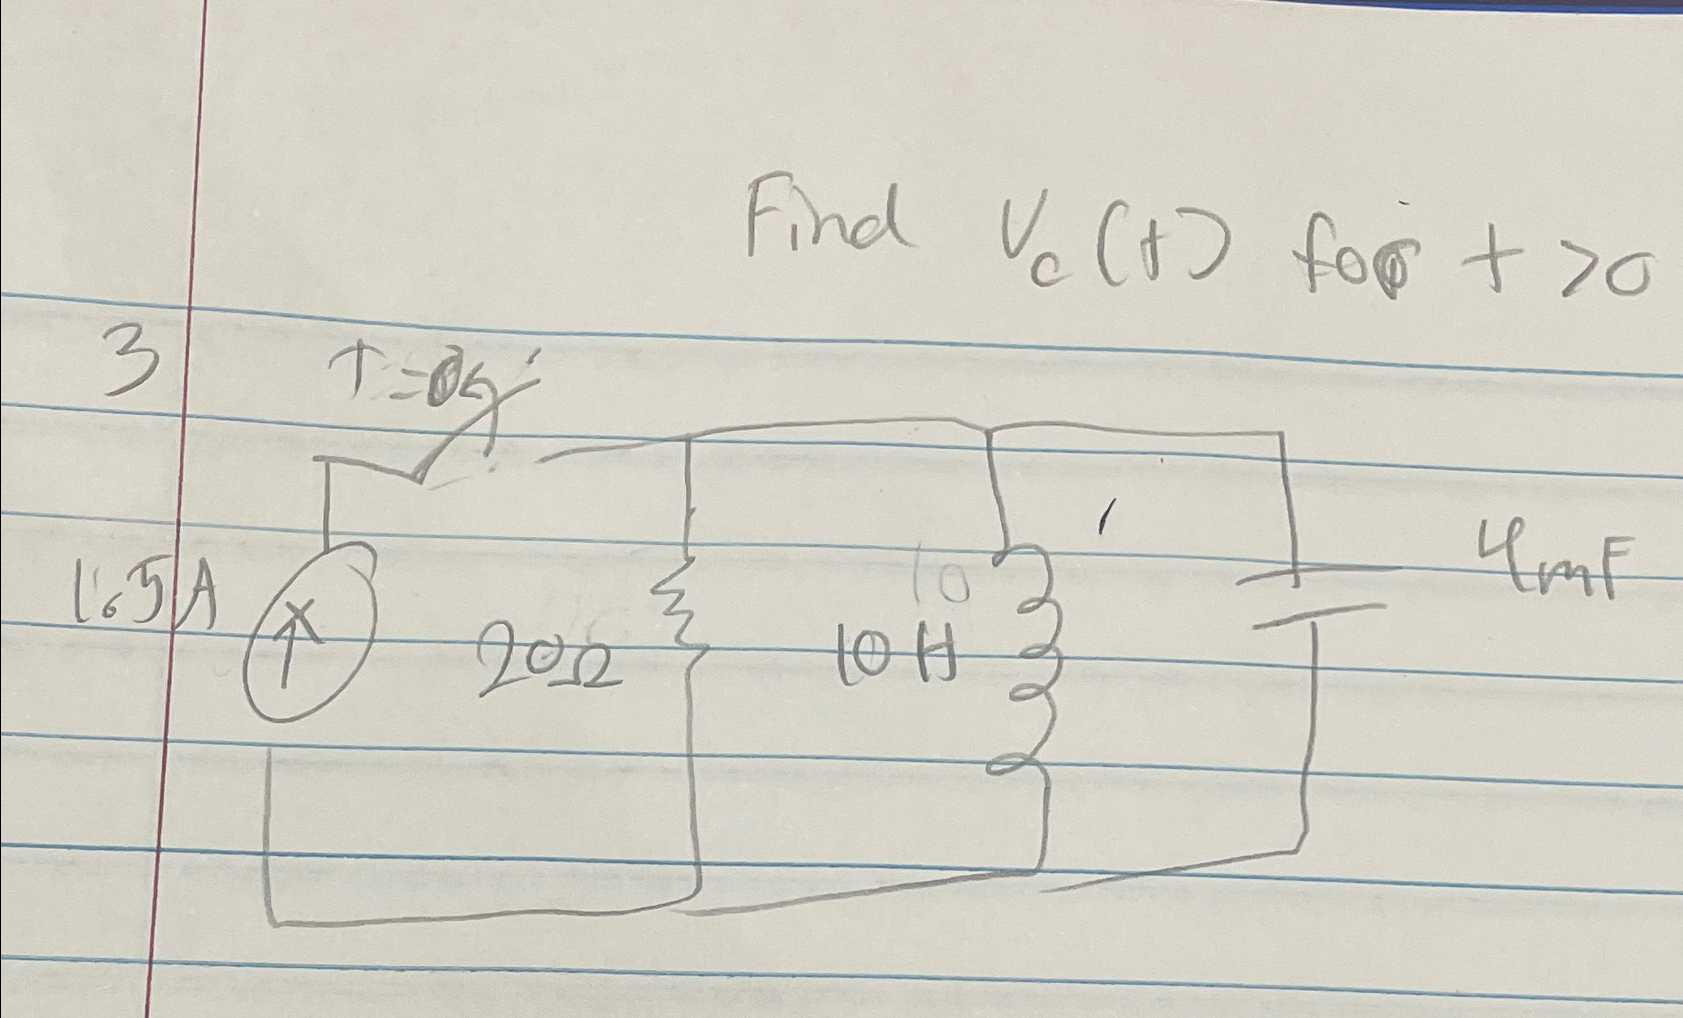 Find Vc(t) for t >0
3
T=0s
1.5A
20Ω
10
10 H
4mF